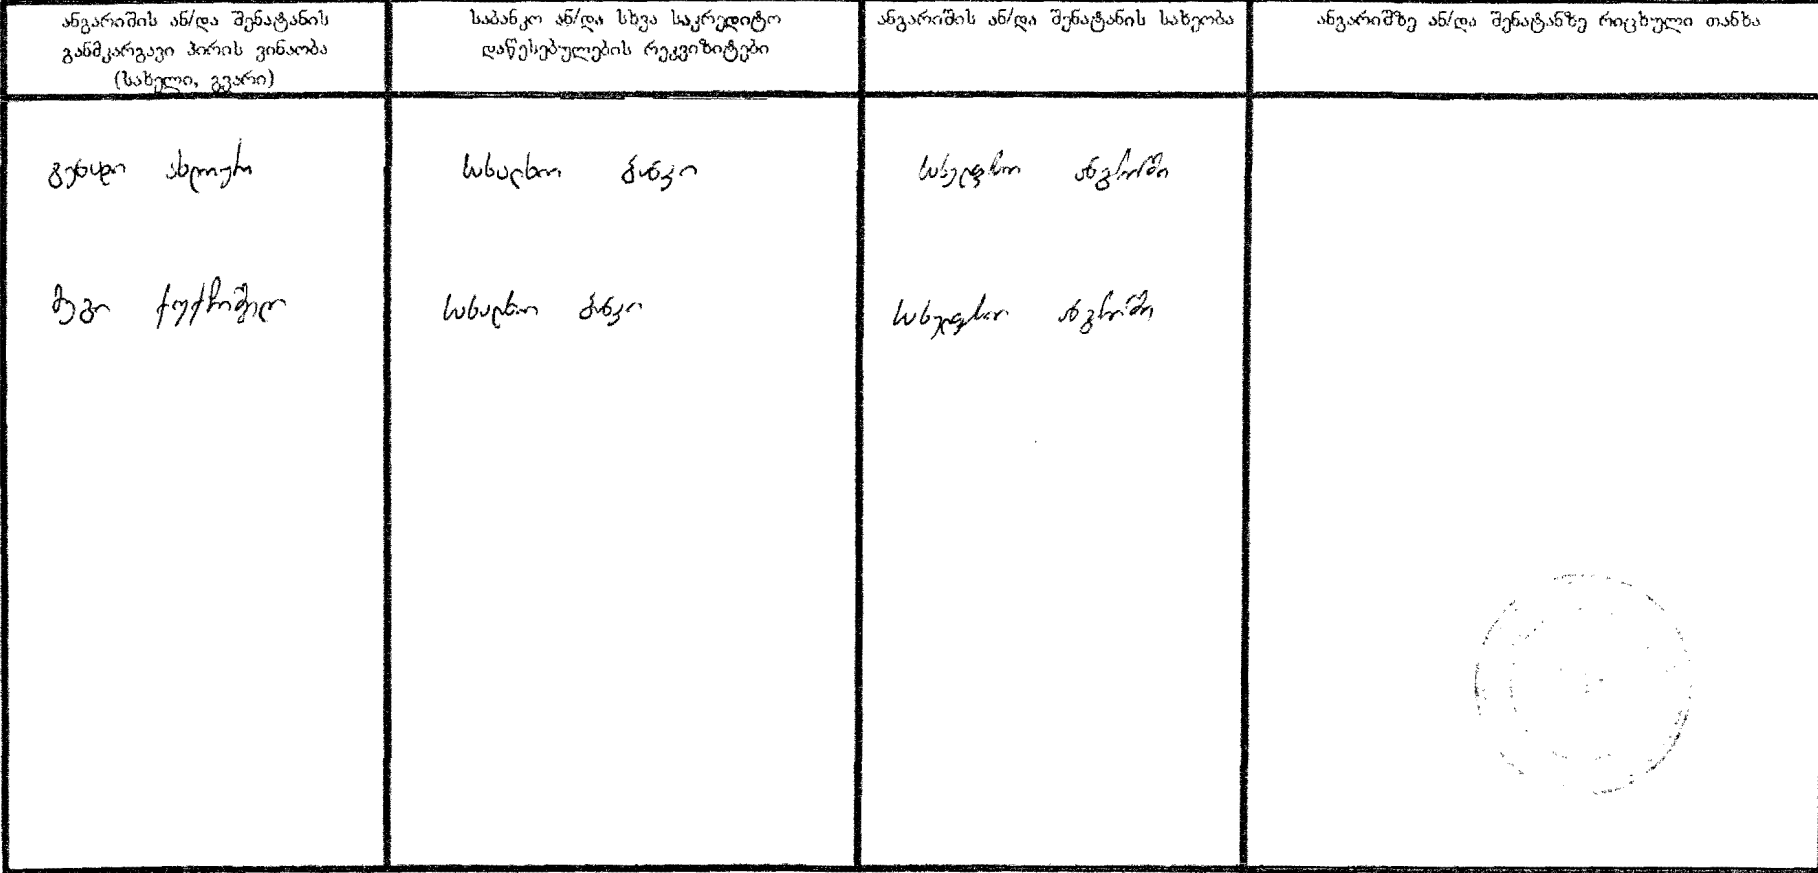 ანგარიშის ან/და შენატანის
განმკარგავი პირის ვინაობა
(სახელი, გვარი)
საბანკო ან/და სხვა საკრედიტო
დაწესებულების რეკვიზიტები
ანგარიშის ან/და შენატანის სახეობა
ანგარიშზე ან/და შენატანზე რიცხული თანხა
სახალხო ბანკი
სახელფასო ანგარიში
სახალხო ბანკი
სახელფასო ანგარიში